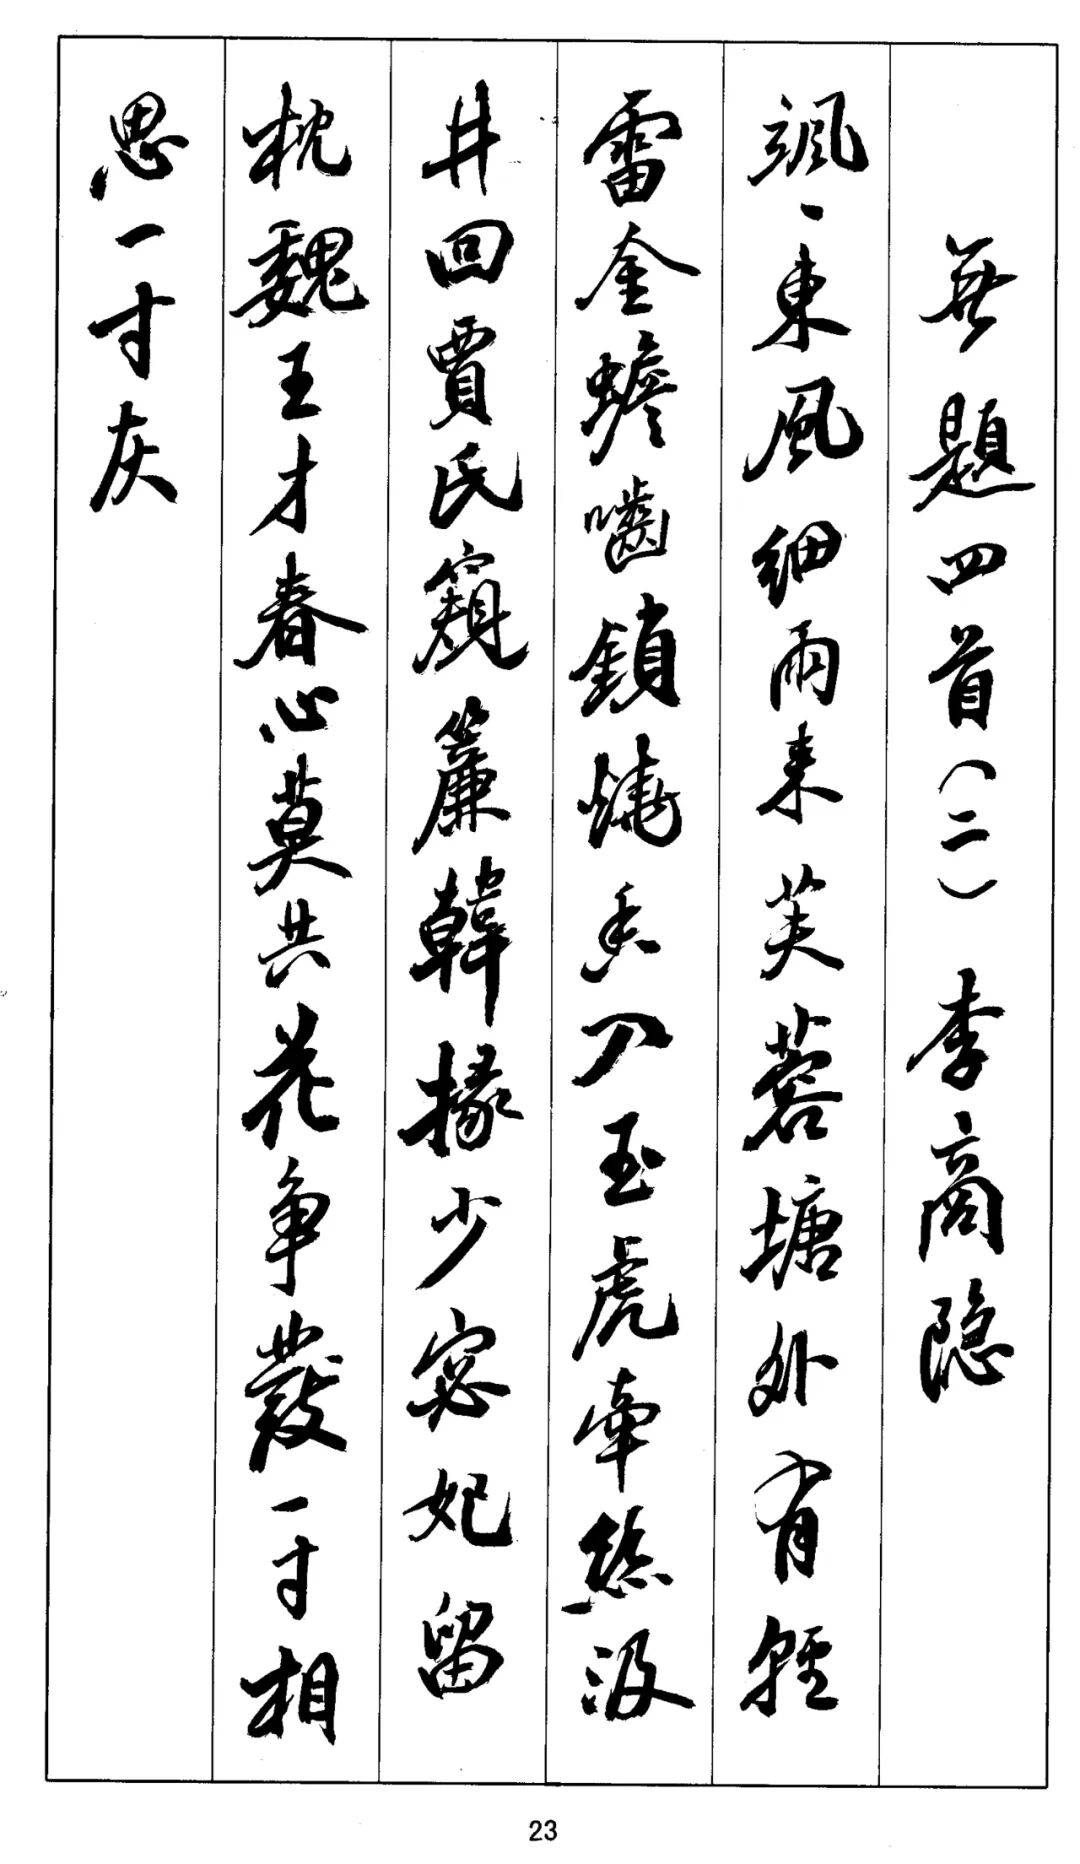 無題四首(二) 李商隐
颯、東風細雨來芙蓉塘外有輕
雷金蟾嚙鎖燒香入玉虎牽絲汲
井回賈氏窺簾韓掾少宓妃留
枕魏王才春心莫共花争發一寸相
思一寸灰
23